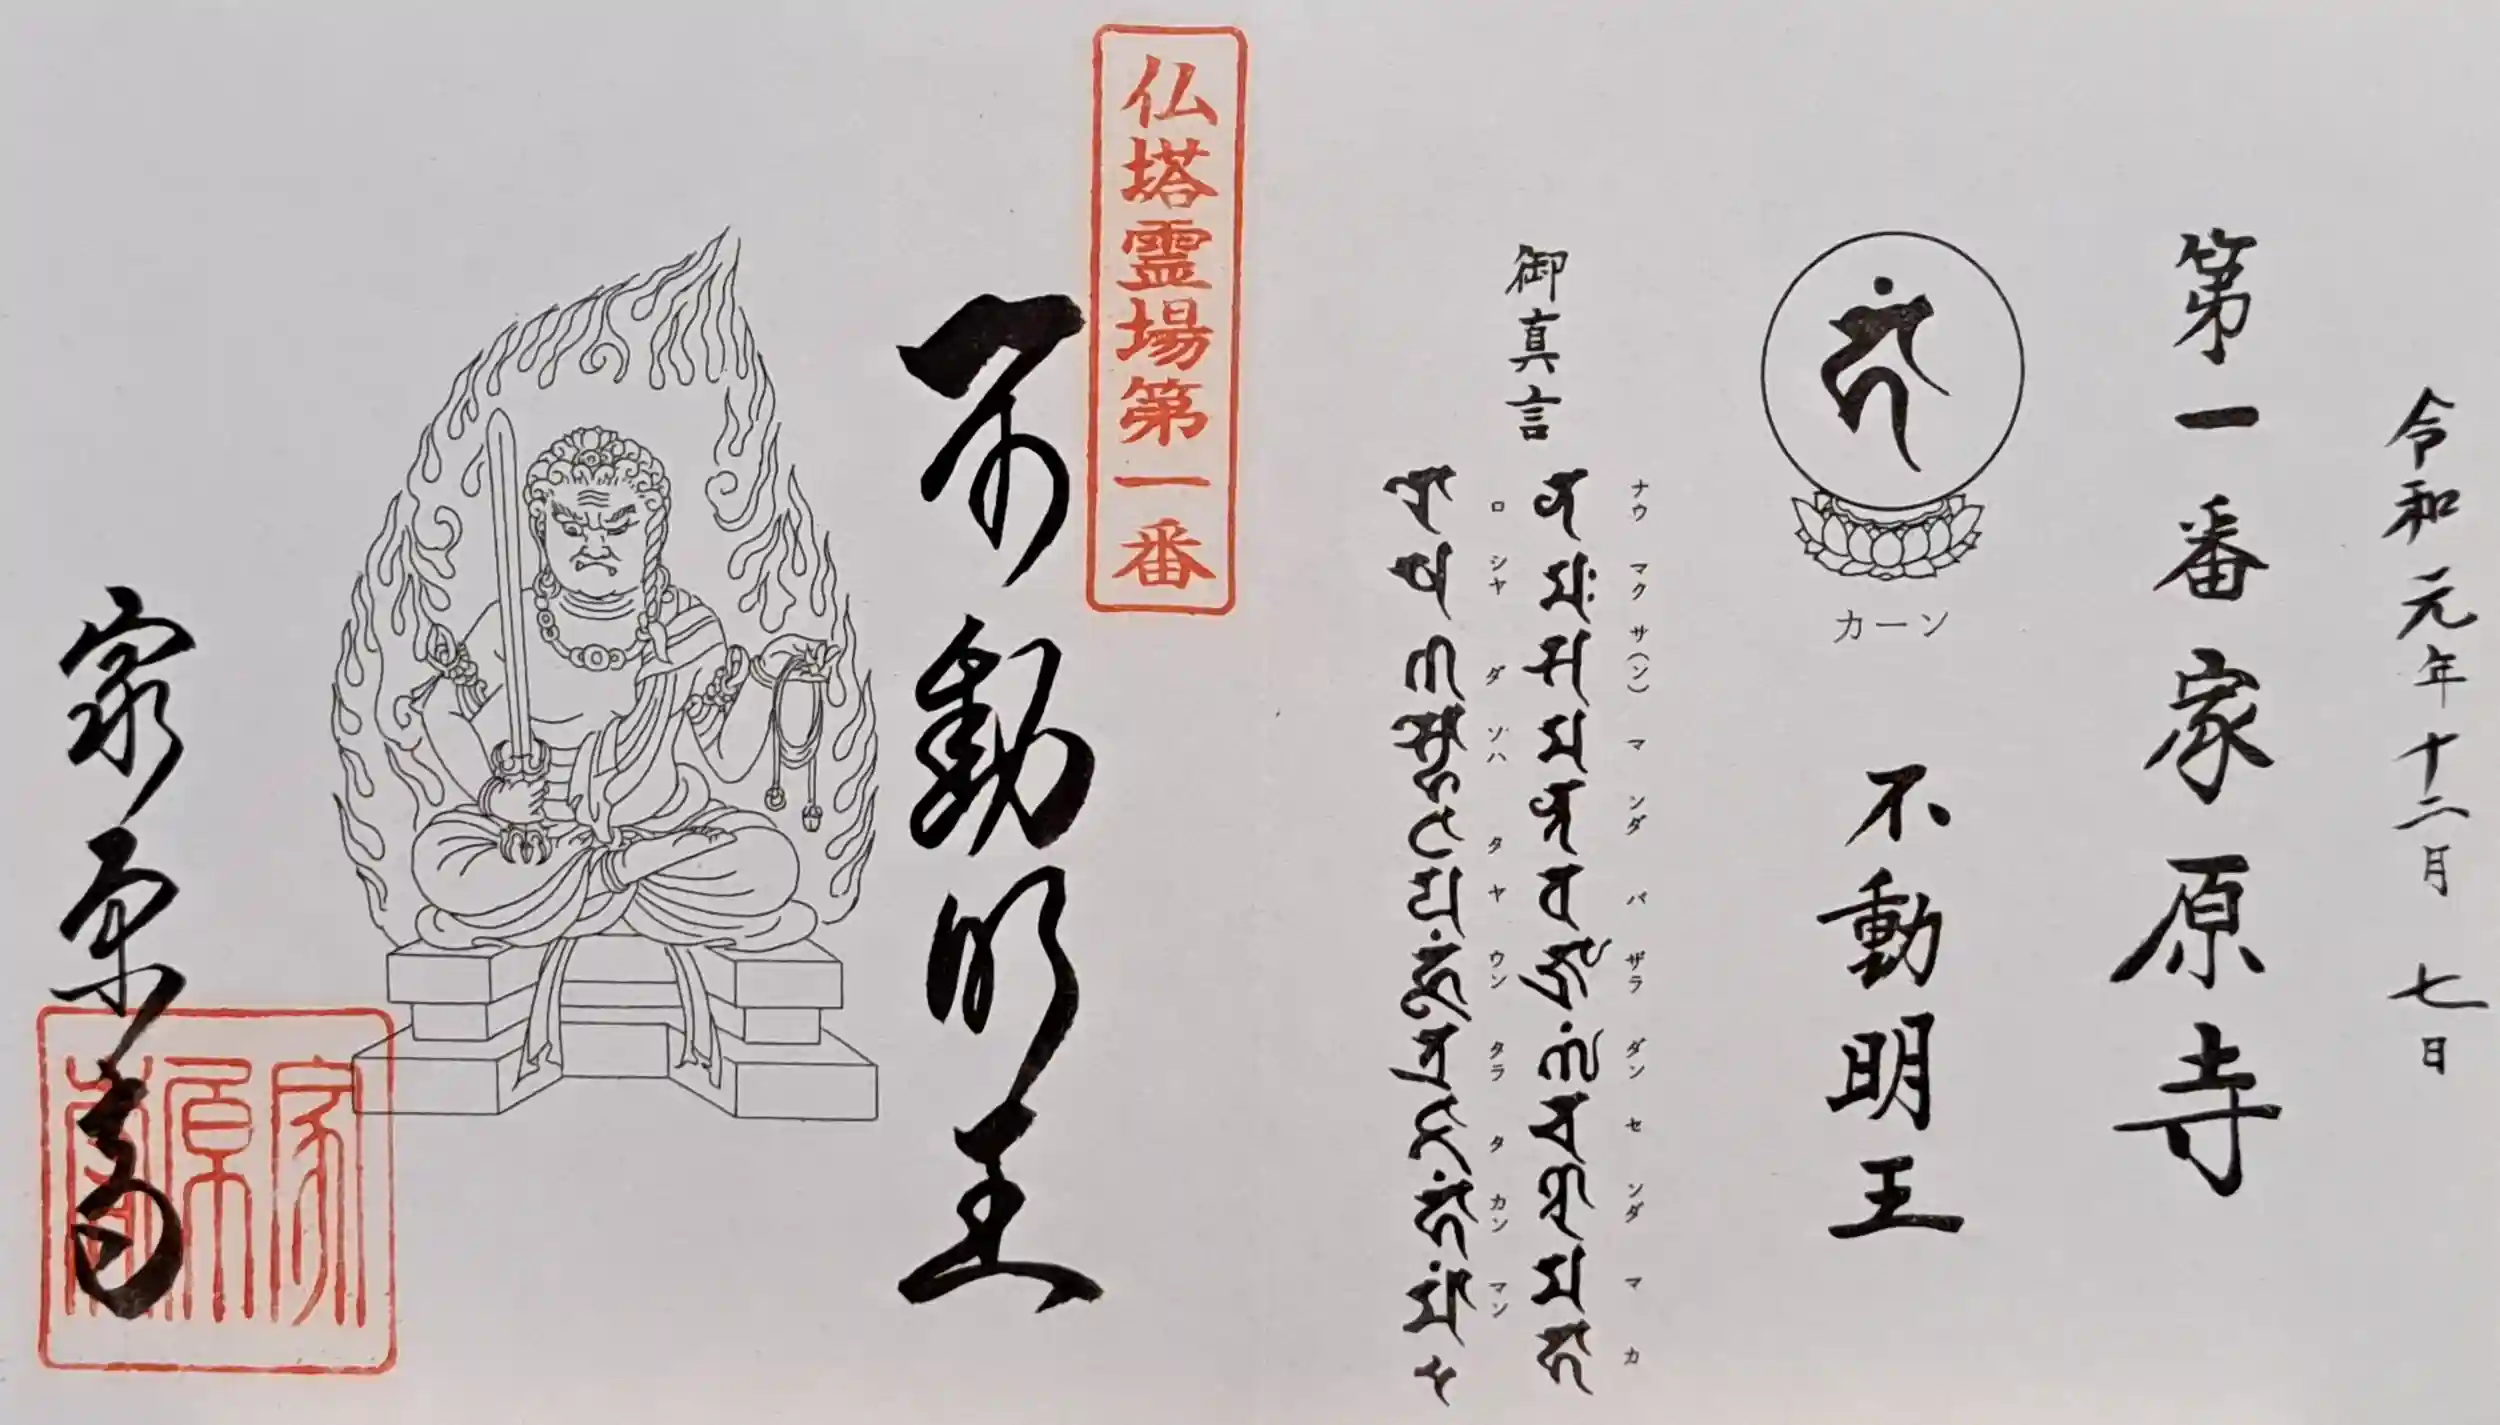 令和元年十二月七日
第一番家原寺
カーン
不動明王
御真言
ナウ マク サ(ン) マ ンダ バ ザラ ダン セ ンダ マ カ
ロ シヤ ダ ソハ タ ヤ ウン タラ タ カン マン
仏塔霊場第一番
不動明王
家原寺